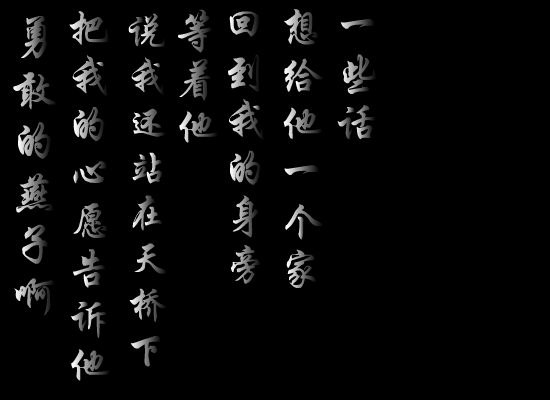 勇敢的燕子啊
把我的心愿告诉他
说我还站在天桥下
等着他
回到我的身旁
想给他一个家
一些话